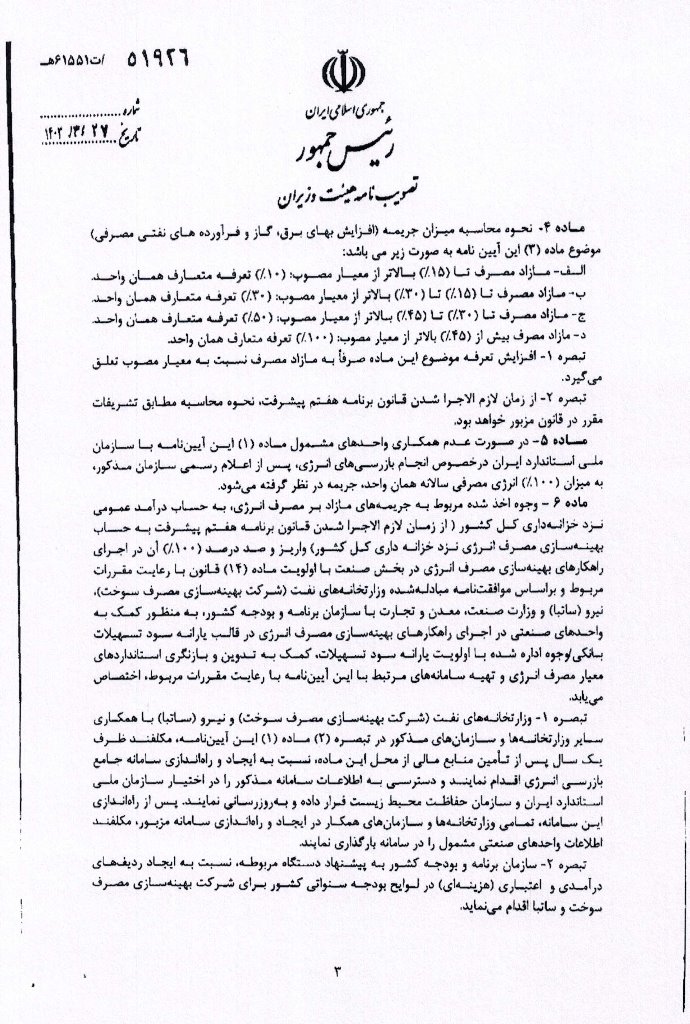 ۵۱۹۲۶ /ت۶۱۵۵۱هـ
جمهوری اسلامی ایران
رئیس جمهور
تصویب نامه هیئت وزیران
شماره
تاریخ ۱۴۰۳/۳/۲۷
ماده ۴- نحوه محاسبه میزان جریمه (افزایش بهای برق، گاز و فرآورده های نفتی مصرفی)
موضوع ماده (۳) این آیین نامه به صورت زیر می باشد:
الف- مازاد مصرف تا (۱۵٪) بالاتر از معیار مصوب: (۱۰٪) تعرفه متعارف همان واحد.
ب- مازاد مصرف تا (۱۵٪) تا (۳۰٪) بالاتر از معیار مصوب: (۳۰٪) تعرفه متعارف همان واحد.
ج- مازاد مصرف تا (۳۰٪) تا (۴۵٪) بالاتر از معیار مصوب: (۵۰٪) تعرفه متعارف همان واحد.
د- مازاد مصرف بیش از (۴۵٪) بالاتر از معیار مصوب: (۱۰۰٪) تعرفه متعارف همان واحد.
تبصره ۱- افزایش تعرفه موضوع این ماده صرفاً به مازاد مصرف نسبت به معیار مصوب تعلق
می‌گیرد.
تبصره ۲- از زمان لازم الاجرا شدن قانون برنامه هفتم پیشرفت، نحوه محاسبه مطابق تشریفات
مقرر در قانون مزبور خواهد بود.
ماده ۵- در صورت عدم همکاری واحدهای مشمول ماده (۱) این آیین‌نامه با سازمان
ملی استاندارد ایران درخصوص انجام بازرسی‌های انرژی، پس از اعلام رسمی سازمان مذکور،
به میزان (۱۰۰٪) انرژی مصرفی سالانه همان واحد، جریمه در نظر گرفته می‌شود.
ماده ۶ - وجوه اخذ شده مربوط به جریمه‌های مازاد بر مصرف انرژی، به حساب درآمد عمومی
نزد خزانه‌داری کل کشور ( از زمان لازم الاجرا شدن قانون برنامه هفتم پیشرفت به حساب
بهینه‌سازی مصرف انرژی نزد خزانه داری کل کشور) واریز و صد درصد (۱۰۰٪) آن در اجرای
راهکارهای بهینه‌سازی مصرف انرژی در بخش صنعت با اولویت ماده (۱۴) قانون با رعایت مقررات
مربوط و براساس موافقت‌نامه مبادله‌شده وزارتخانه‌های نفت (شرکت بهینه‌سازی مصرف سوخت)،
نیرو (ساتبا) و وزارت صنعت، معدن و تجارت با سازمان برنامه و بودجه کشور، به منظور کمک به
واحدهای صنعتی در اجرای راهکارهای بهینه‌سازی مصرف انرژی در قالب یارانه سود تسهیلات
بانکی/وجوه اداره شده با اولویت یارانه سود تسهیلات، کمک به تدوین و بازنگری استانداردهای
معیار مصرف انرژی و تهیه سامانه‌های مرتبط با این آیین‌نامه با رعایت مقررات مربوط، اختصاص
می‌یابد.
تبصره ۱- وزارتخانه‌های نفت (شرکت بهینه‌سازی مصرف سوخت) و نیرو (ساتبا) با همکاری
سایر وزارتخانه‌ها و سازمان‌های مذکور در تبصره (۲) ماده (۱) این آیین‌نامه، مکلفند ظرف
یک سال پس از تأمین منابع مالی از محل این ماده، نسبت به ایجاد و راه‌اندازی سامانه جامع
بازرسی انرژی اقدام نمایند و دسترسی به اطلاعات سامانه مذکور را در اختیار سازمان ملی
استاندارد ایران و سازمان حفاظت محیط زیست قرار داده و به‌روزرسانی نمایند. پس از راه‌اندازی
این سامانه، تمامی وزارتخانه‌ها و سازمان‌های همکار در ایجاد و راه‌اندازی سامانه مزبور، مکلفند
اطلاعات واحدهای صنعتی مشمول را در سامانه بارگذاری نمایند.
تبصره ۲- سازمان برنامه و بودجه کشور به پیشنهاد دستگاه مربوطه، نسبت به ایجاد ردیف‌های
درآمدی و اعتباری (هزینه‌ای) در لوایح بودجه سنواتی کشور برای شرکت بهینه‌سازی مصرف
سوخت و ساتبا اقدام می‌نماید.
۳